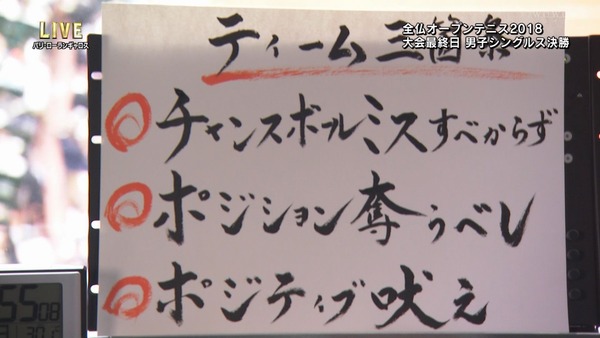 LIVE
パリ・ローランギャロス
全仏オープンテニス2018
大会最終日 男子シングルス決勝
ティーム三箇条
チャンスボールミスすべからず
ポジション奪うべし
ポジティブ吠え
55 08
30.1